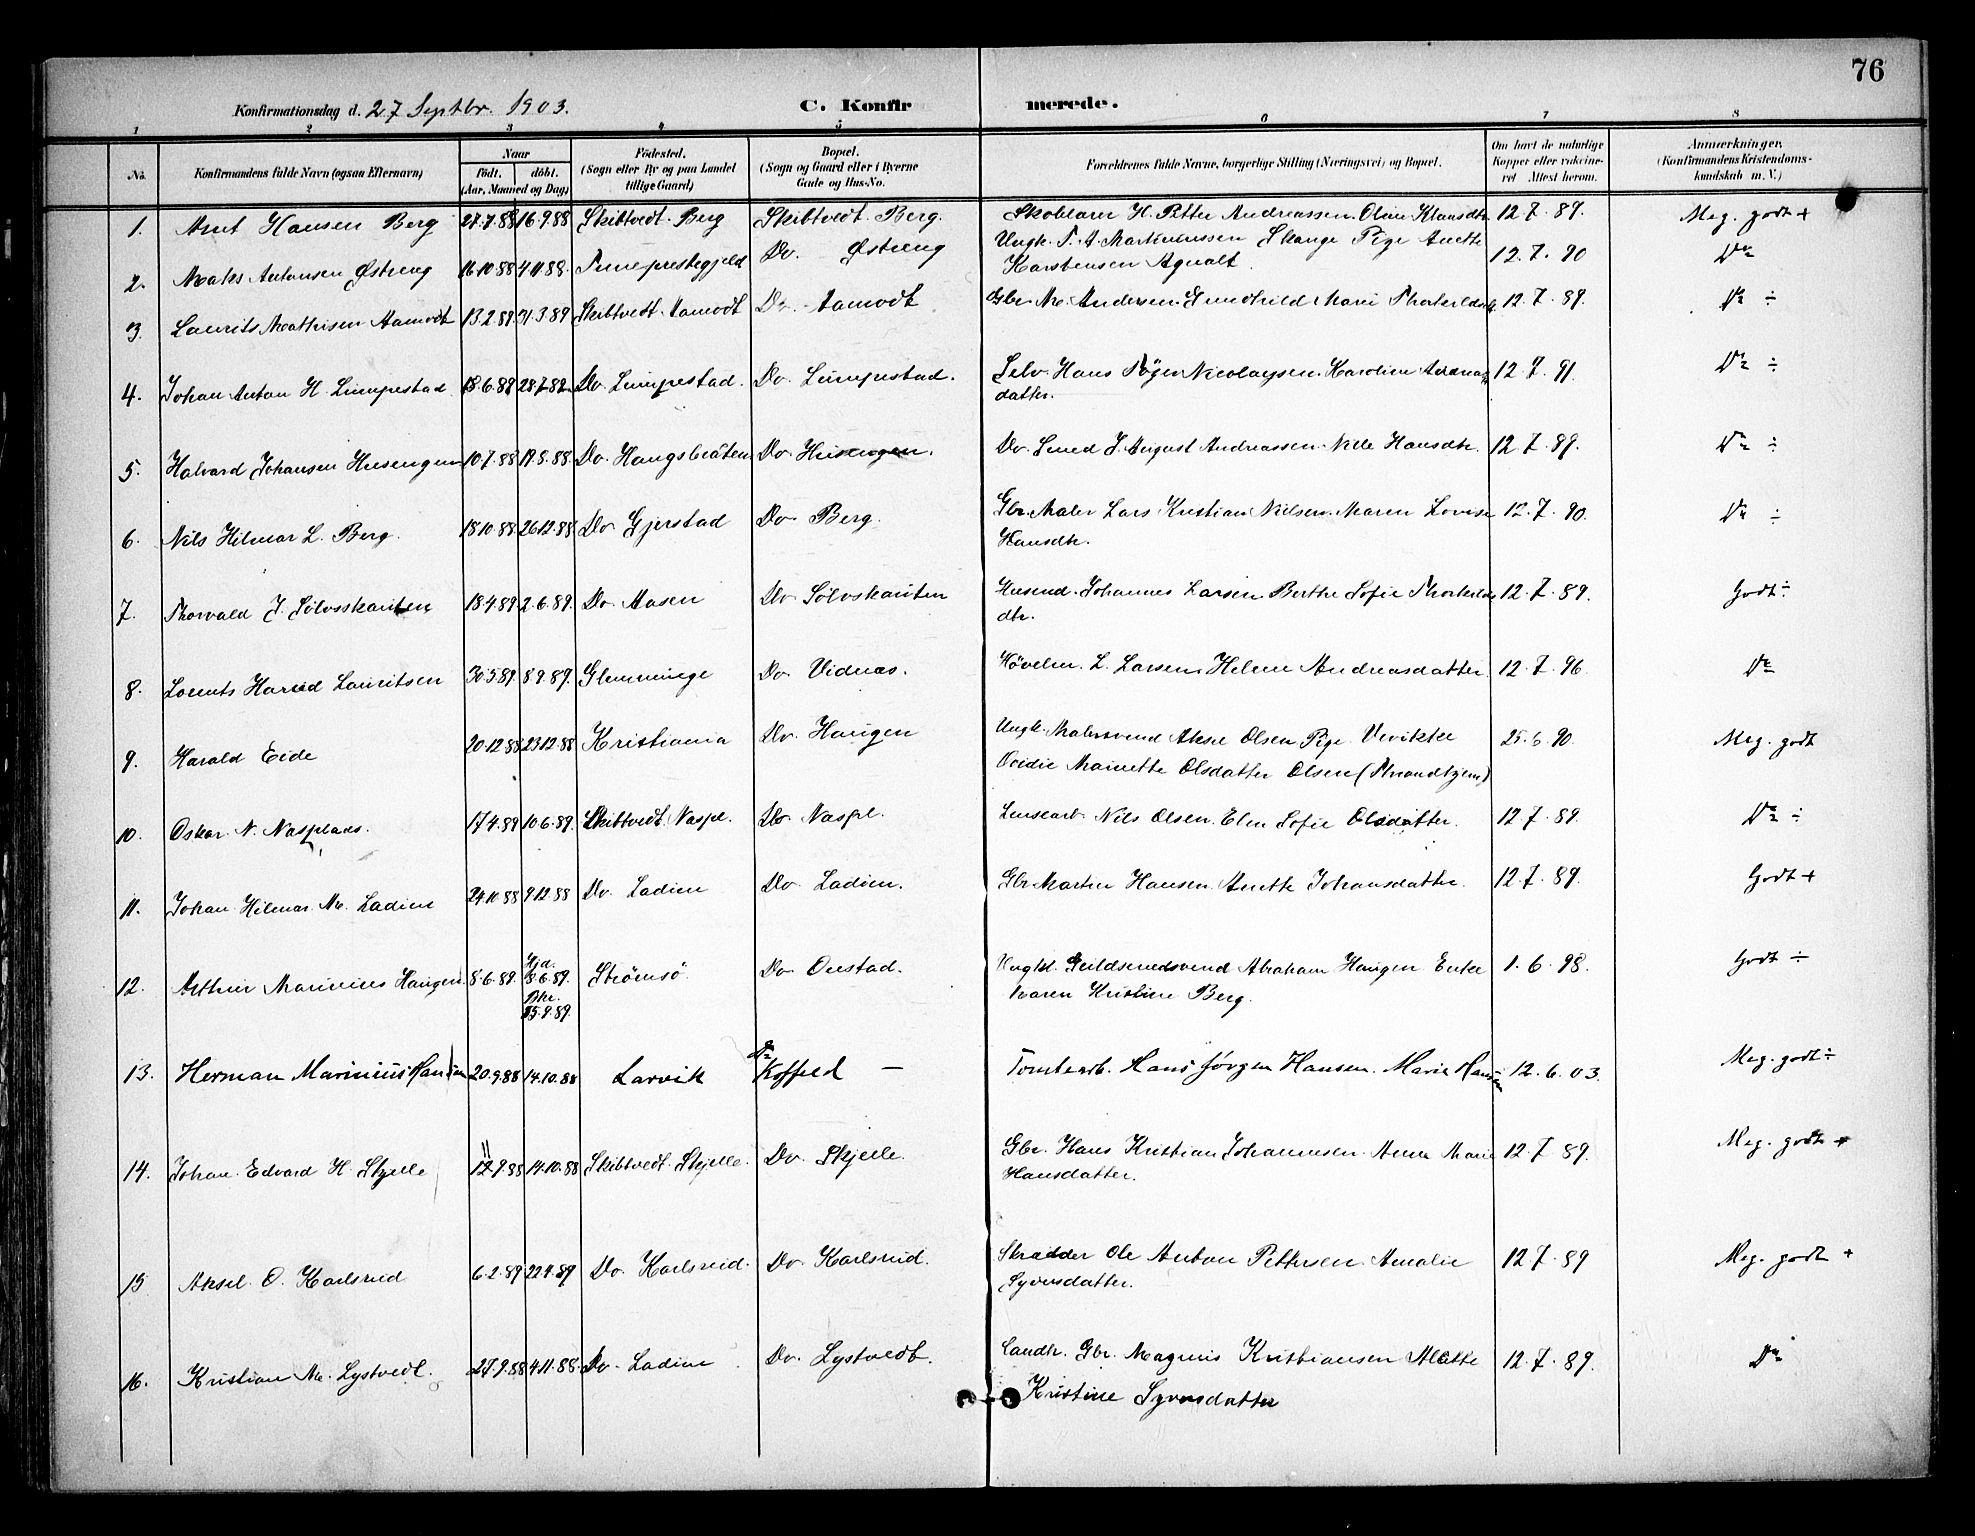 76
Konfirmationsdag d. 27 Septbr. 1903. C. Konfirmerede.
1 2 3 4 5 6 7 8
No. Konfirmandens fulde Navn (ogsaa Efternavn) Naar Födt. döbt. (Aar, Maaned og Dag) Födested. (Sogn eller By og paa Landet tillige Gaard) Bopæl. (Sogn og Gaard eller i Byerne Gade og Hus-No. Forældrenes fulde Navne, borgerlige Stilling (Næringsvei) og Bopæl. Om havt de naturlige Kopper eller vakcineret Attest herom. Anmærkninger. (Konfirmandens Kristendomskundskab m. V.)
1. Arnt Hansen Berg 27.7.88 16.9.88 Skibtvedt. Berg Skibtvedt. Berg. Skoblearer H. Petter Andreassen. Oline Klausdtr 12.7.89. Meg. godt +
2. Antonsen Østreng 16.10.88 4.11.88. Tuneprestegjeld Do. Østreng Ungk. P. A. Martinussen Skange Pige Anette 12.7.90 Do
Karstensen
3. Laurits Mathisen Aamodt 13.2.89. 31.3.89 Skibtvedt. Aamodt Do. Aamodt Gbr. M. Andersen. Gundhild Marie 12.7.89. Do ÷
4. Johan Anton H. Lumpestad 18.6.89 28.7.89. Do. Lumpestad. Do. Lumpestad. Selv. Hans Nicolaysen. Karoline 12.7.91. Do ÷
datter.
5. Halvard Johansen Husengen 10.7.88 19.8.88. Do. Haugsbråten Do. Husengen. Do. Smed J. August Andreassen. Nille Hansdtr. 12.7.89. Do ÷
6. Nils Hilmar L. Berg. 18.10.88 26.12.88 Do Gjerstad Do. Berg. Gbr. Maler Lars Kristian Nielsen. Maren Lovise 12.7.90. Do ÷
Hansdtr.
7. Thorvald J. Sølvskauten 18.4.89 2.6.89. Do. Aasen Do Sølvskauten Husmd. Johannes Larsen. Berthe Sofie 12.7.89. Godt ÷
dtr.
8. Lorents Harald Lauritsen 30.3.89. 8.9.89. Glemminge Do Vidnæs. Høvelm. L. Larsen. Helene Andreasdatter 12.7.96. Do
9. Harald Eide 20.12.88 23.12.88 Kristiania Do. Haugen Ungk. Malersvend Aksel Olsen. Pige 25.6.90. Meg. godt
Ovidie Mainette Olsdatter Olsen (Strandhjem)
10. Oskar N. Naspl. 17.4.89 10.6.89. Skibtvedt. Naspl. Do Naspl. Lensearb. Nils Olsen. Elen Sofie Olsdatter. 12.7.89. Do ÷
11. Johan Hilmar M. Ladim 24.10.88 9.12.88 Do. Ladim Do. Ladim. Gbr. Martin Hansen. Anette Johansdatter. 12.7.89. Godt +
12. Arthur Marinius Haugen 8.6.89. Hjd. 8.6.89. Bkr. 15.9.89. Strømsø. Do. Onstad. Ungkl. Guldsmedsvend Abraham Haugen Enke 1.6.98. Godt ÷
Maren Kristine Berg.
13. Herman Marinius Hansen 20.9.88 14.10.88 Larvik Do Koffeld — Tomtearb. Hans Jørgen Hansen. Marie Hansen 12.6.03. Meg. godt ÷
14. Johan Edvard H. Skjelle 11 12.9.88 14.10.88 Skibtvedt. Skjelle. Do. Skjelle. Gbr. Hans Kristian Johannesen. Anne Marie 12.7.89. Meg. godt +
Hansdatter.
15 Aksel O. Karlsrud 6.2.89 22.4.89 Do. Karlsrud. Do. Karlsrud. Skrædder Ole Anton Pettersen. Amalie 12.7.89 Meg. godt +
Syversdatter.
16. Kristian M. Lystvedt. 27.9.88 4.11.88. Do. Ladim Do. Lystvedt. Landh. Gbr. Magnus Kristiansen 12.7.89. Do
Kristine Syversdatter